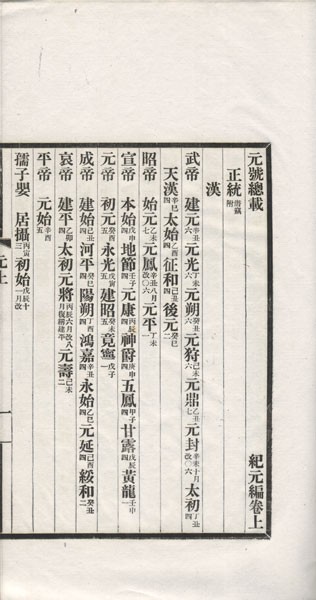 元號總載　紀元編卷上
正統僭竊附
漢
武帝　建元辛丑六　元光丁未六　元朔癸丑六　元狩己未六　元鼎乙丑七　元封辛未十月改〇六　太初丁丑四
天漢辛巳四　太始乙酉四　征和己丑四　後元癸巳二
昭帝　始元乙未七　元鳳辛丑八月改〇六　元平丁未一
宣帝　本始戊申四　地節壬子四　元康丙辰四　神爵庚申四　五鳳甲子四　甘露戊辰四　黃龍壬申一
元帝　初元癸酉五　永光戊寅五　建昭癸未五　竟寧戊子一
成帝　建始己丑四　河平癸巳四　陽朔丁酉四　鴻嘉辛丑四　永始乙巳四　元延己酉四　綏和癸丑二
哀帝　建平乙卯四　太初元將丙辰六月改八月復稱建平　元壽己未二
平帝　元始辛酉五
孺子嬰　居攝丙寅三　初始戊辰十一月改